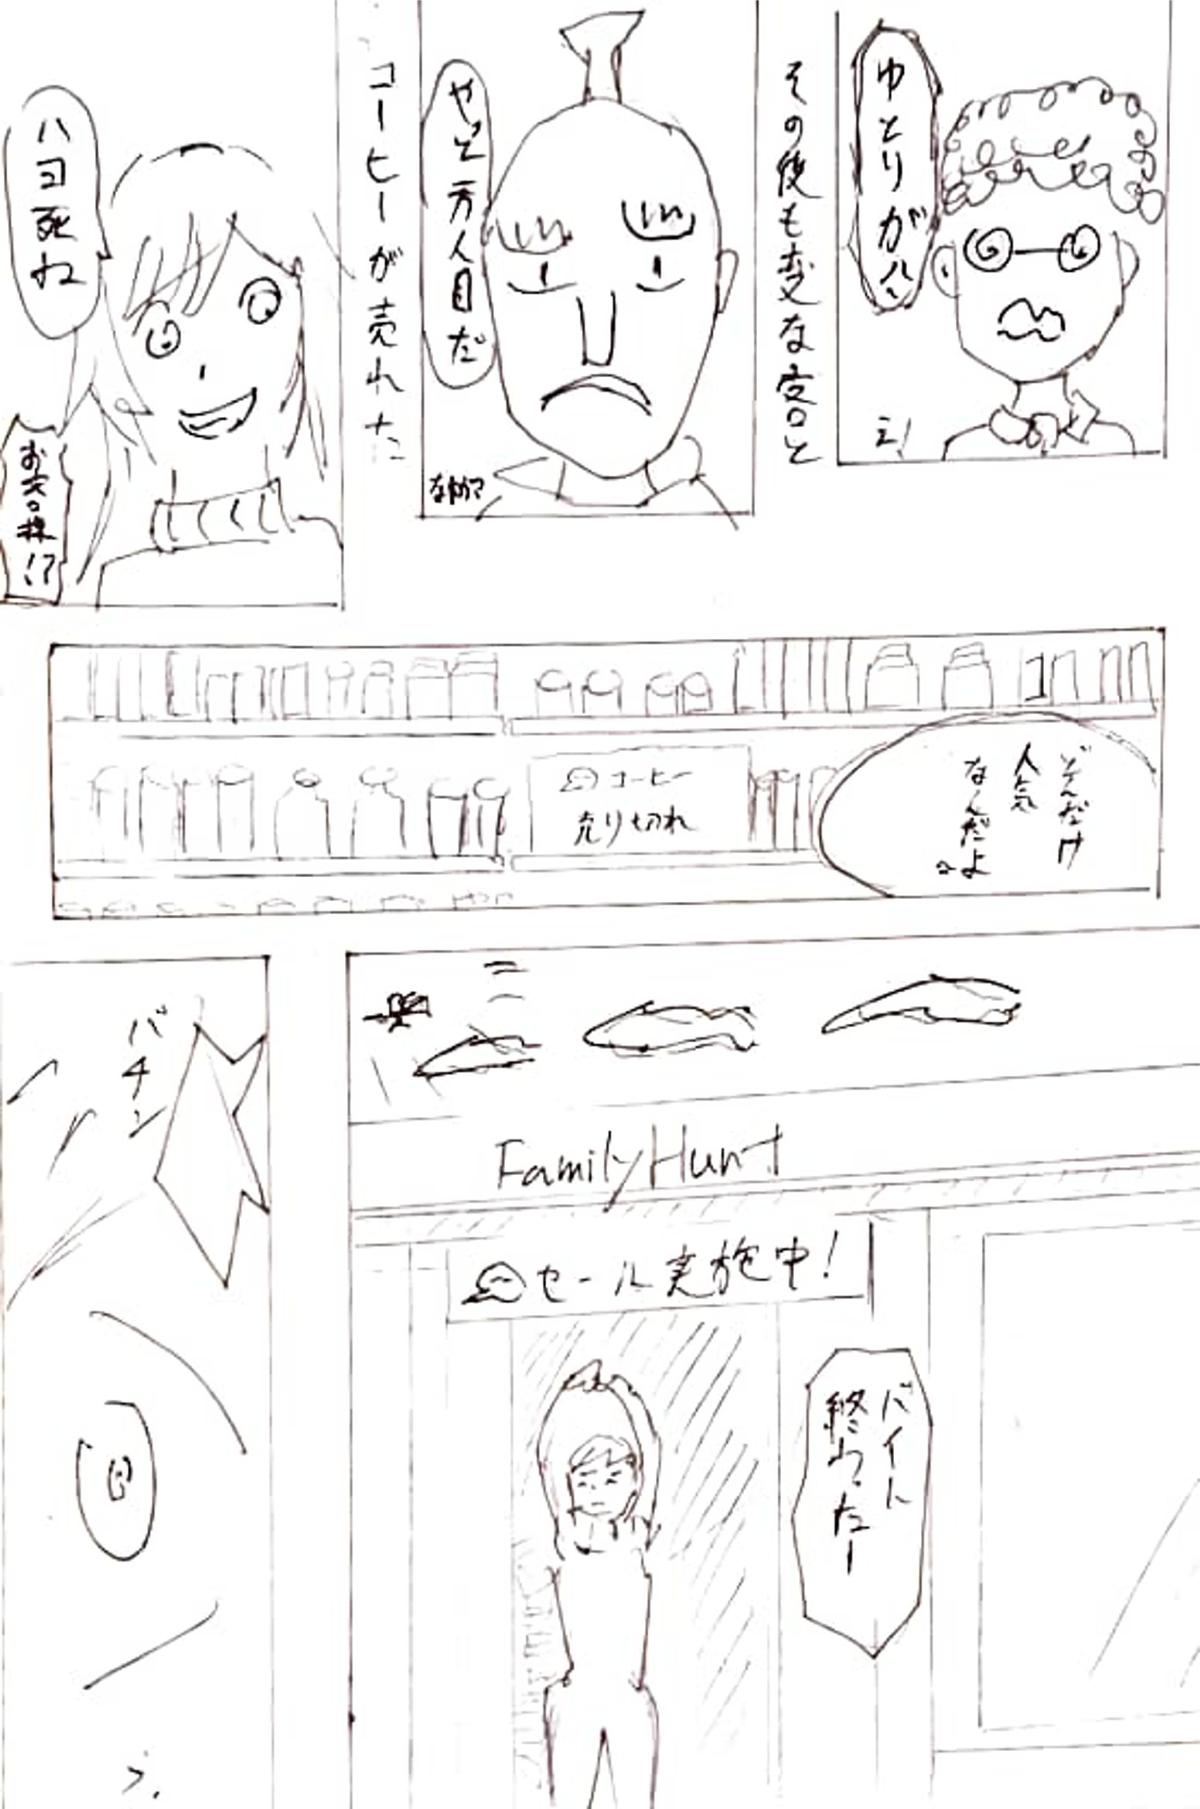 ゆとりが!!
その後も変な客と
やっと一万人目だ
コーヒーが売れた
ハヨ死ね
お客様!?
コーヒー
売り切れ
どんだけ
人気
なんだよ
FamilyHunt
セール実施中!
バイト
終わったー
パチン
う.